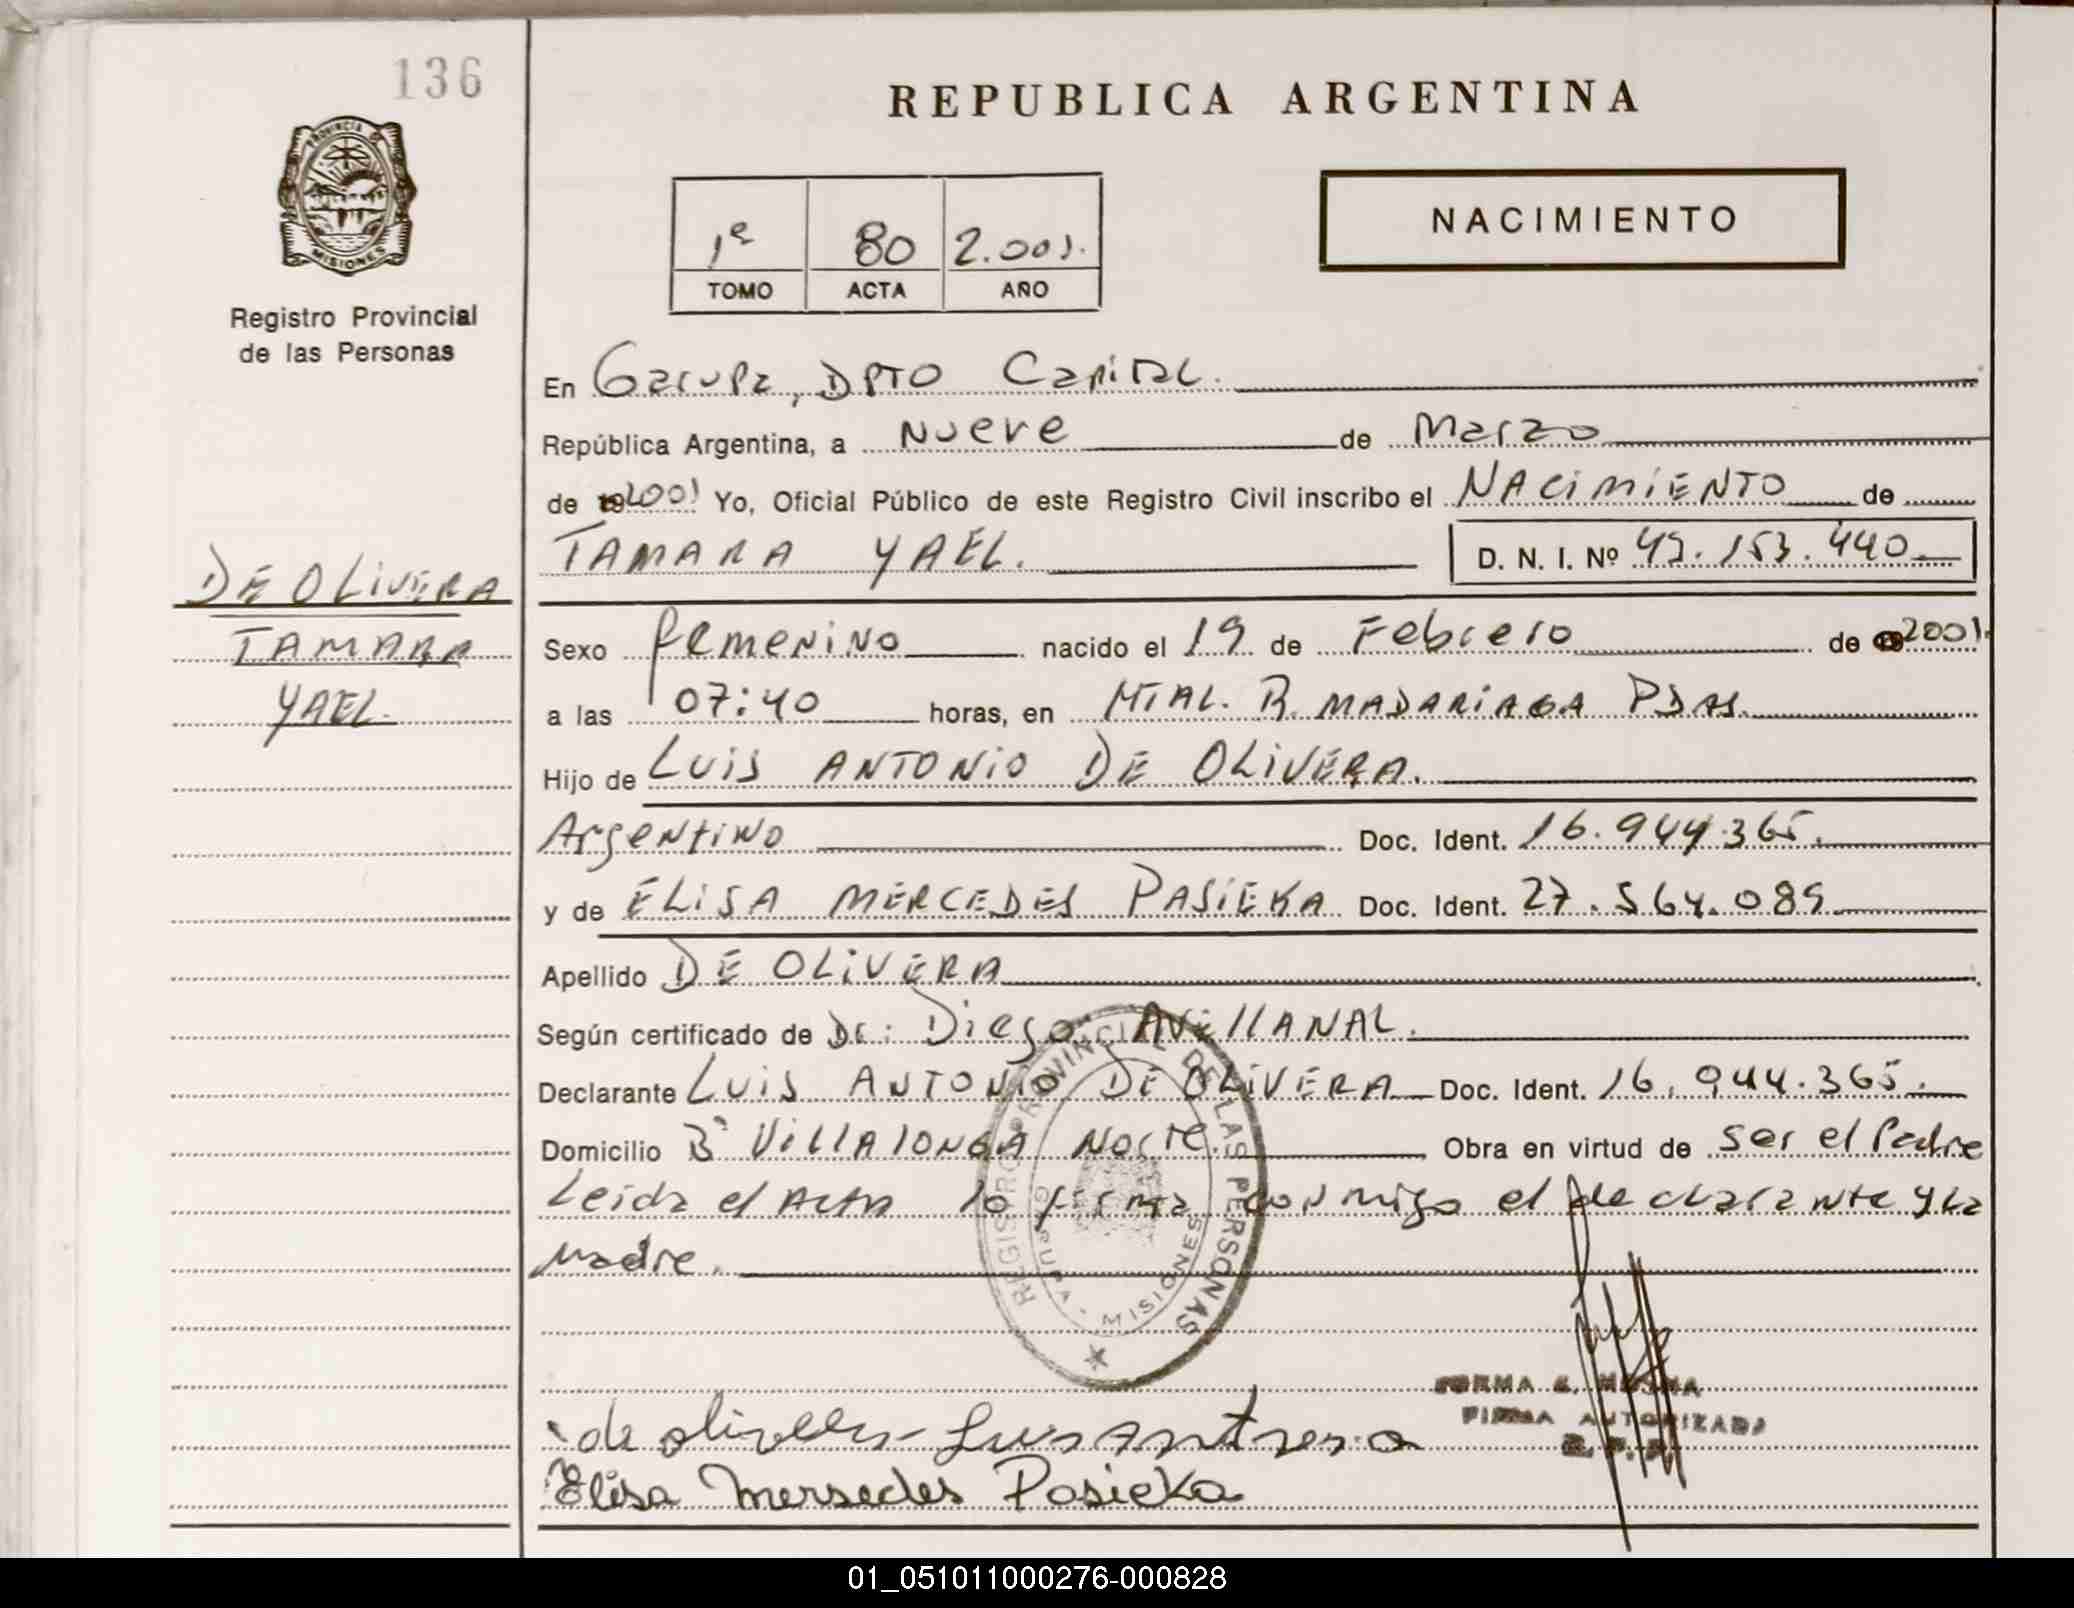 136
REPUBLICA ARGENTINA
PROVINCIA DE
MISIONES
Registro Provincial
de las Personas
1º 80 2.001.
TOMO ACTA AÑO
NACIMIENTO
En Garupa, DPTO Capital.
República Argentina, a Nueve de Marzo
de 2001 Yo, Oficial Público de este Registro Civil inscribo el NACIMIENTO de
TAMARA YAEL. D. N. I. Nº 43.153.440
DE OLIVERA
TAMARA
YAEL.
Sexo femenino nacido el 19 de Febrero de 2001.
a las 07:40 horas, en HTAL. R. MADARIAGA PDAS.
Hijo de LUIS ANTONIO DE OLIVERA.
Argentino Doc. Ident. 16.944.365.
y de ELISA MERCEDES PASIEKA Doc. Ident. 27.564.089
Apellido DE OLIVERA
Según certificado de Dr: Diego AVELLANAL.
Declarante LUIS ANTONIO DE OLIVERA Doc. Ident. 16.944.365.
Domicilio Bº VILLALONGA Norte. Obra en virtud de ser el Padre
Leida el ACTA lo firma conmigo el declarante y la
Madre.
REGISTRO PROVINCIAL DE LAS PERSONAS
Garupá - MISIONES
NORMA
FIRMA AUTORIZADA
R. P. P.
de olivera Luis Antonio
Elisa Mersedes Pasieka
01_051011000276-000828